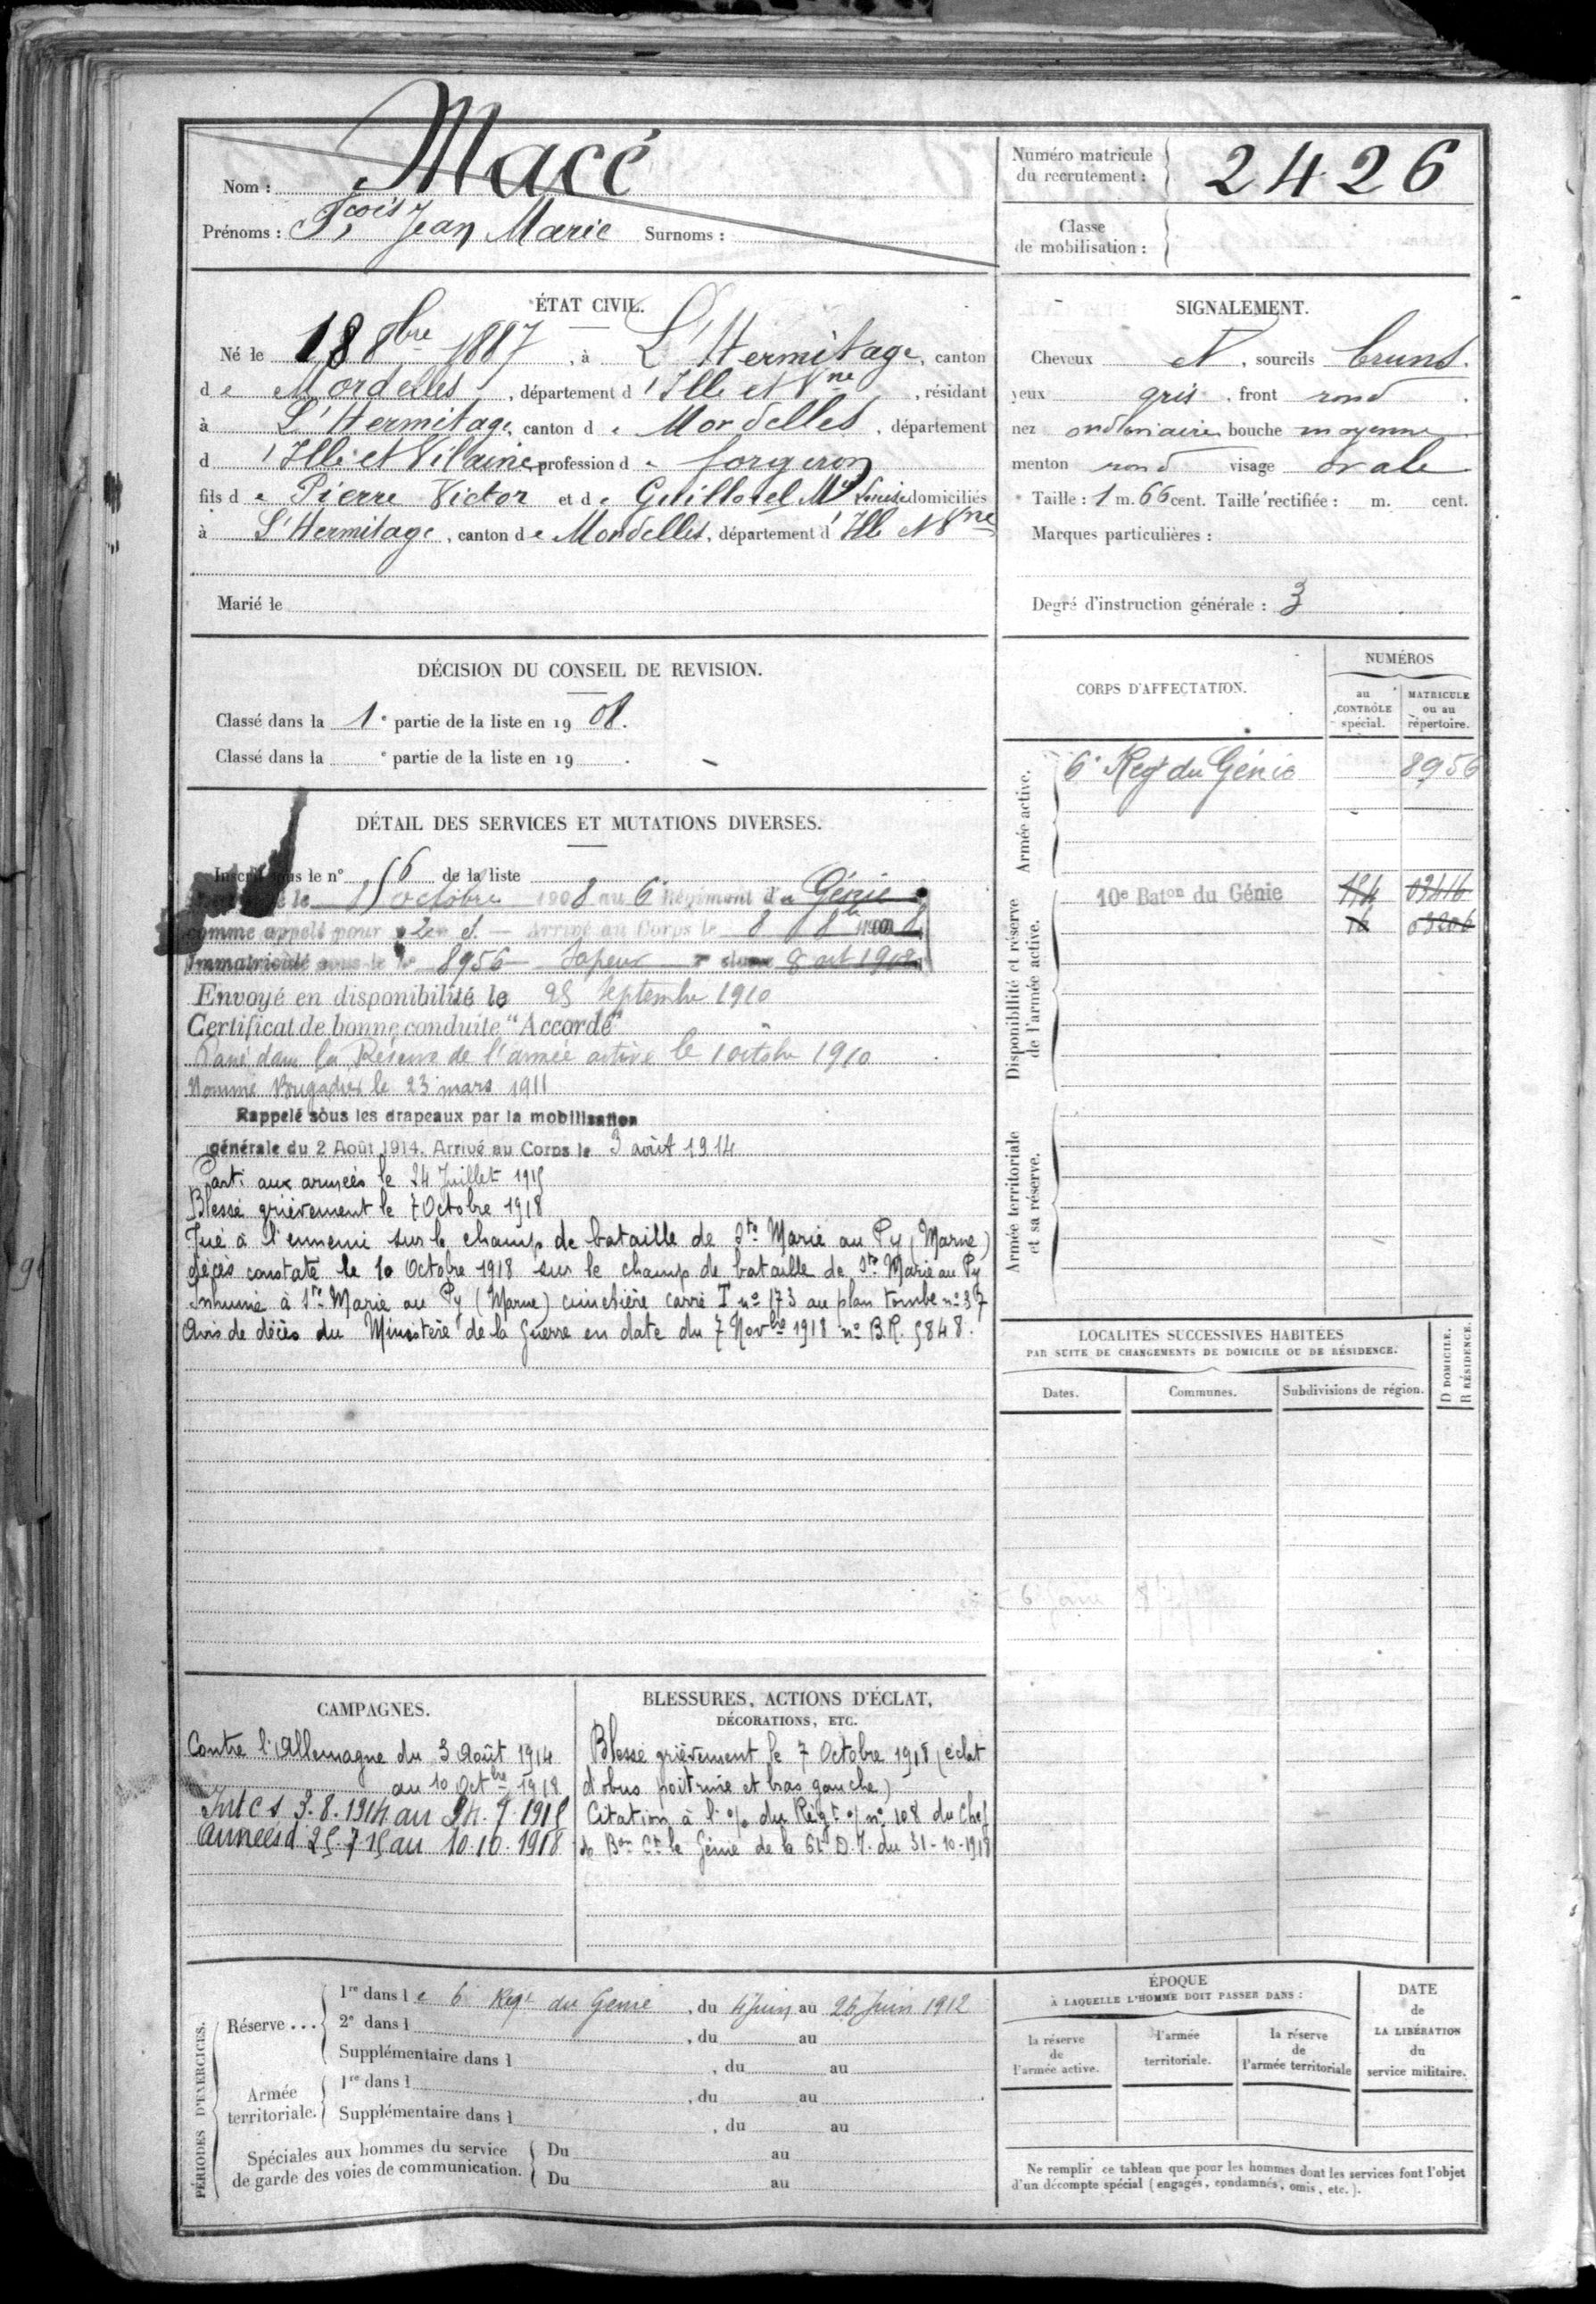 Nom : Macé
Prénoms : Fçois Jean Marie Surnoms :
Numéro matricule du recrutement : 2426
Classe de mobilisation :
ÉTAT CIVIL.
Né le 18 8bre 1887, à L'Hermitage, canton
de Mordelles, département d'Ille et Vne, résidant
à L'Hermitage, canton de Mordelles, département
d'Ille et Vilaine profession de forgeron
fils de Pierre Victor et de Guillotel Mie Louise domiciliés
à L'Hermitage, canton de Mordelles, département d'Ille et Vne
Marié le
SIGNALEMENT.
Cheveux et, sourcils bruns.
yeux gris, front rond.
nez ordinaire, bouche moyenne
menton rond visage ovale
Taille : 1 m. 66 cent. Taille rectifiée : m. cent.
Marques particulières :
Degré d'instruction générale : 3
DÉCISION DU CONSEIL DE REVISION.
Classé dans la 1e partie de la liste en 1908.
Classé dans la e partie de la liste en 19 .
CORPS D'AFFECTATION.
NUMÉROS
au CONTRÔLE spécial.
MATRICULE ou au répertoire.
Armée active.
6e Regt du Génie 8956
Disponibilité et réserve de l'armée active.
10e Baton du Génie 03416
Armée territoriale et sa réserve.
DÉTAIL DES SERVICES ET MUTATIONS DIVERSES.
Inscrit sous le n° 56 de la liste
le octobre 1908 au 6e Régiment du Génie
comme appelé pour 2 Arrivé au Corps le 8 8bre
Immatriculé sous le n° 8956 Sapeur 8 oct 1908
Envoyé en disponibilité le 25 septembre 1910
Certificat de bonne conduite "Accordé"
Passé dans la Réserve de l'armée active le 1 octobre 1910
Nommé Brigadier le 23 mars 1911
Rappelé sous les drapeaux par la mobilisation
générale du 2 Août 1914. Arrivé au Corps le 3 août 1914
Parti aux armées le 24 Juillet 1915
Blessé grièvement le 7 Octobre 1918
Tué à l'ennemi sur le champ de bataille de Ste Marie au Py (Marne)
décès constaté le 10 Octobre 1918 sur le champ de bataille de Ste Marie au Py
Inhumé à Ste Marie au Py (Marne) cimetière carré I n° 173 au plan tombe n° 37
Avis de décès du Ministère de la Guerre en date du 7 Novbre 1918 n° B.R. 5848.
LOCALITÉS SUCCESSIVES HABITÉES
PAR SUITE DE CHANGEMENTS DE DOMICILE OU DE RÉSIDENCE.
Dates. Communes. Subdivisions de région.
D DOMICILE.
R RÉSIDENCE.
CAMPAGNES.
Contre l'Allemagne du 3 Août 1914
au 10 Octbre 1918
Int C S 3.8.1914 au 24.7.1915
Armées d 25.7.15 au 10.10.1918
BLESSURES, ACTIONS D'ÉCLAT,
DÉCORATIONS, ETC.
Blessé grièvement le 7 Octobre 1918 (éclat
d'obus poitrine et bras gauche)
Citation à l'o/o du Régt o/ n° 108 du Chef
de Bon Ct le Génie de la 61e D.I. du 31-10-1918
PÉRIODES D'EXERCICES.
Réserve ...
1re dans le 6 Regt du Genie, du 4 Juin au 26 Juin 1912
2e dans l , du au
Supplémentaire dans l , du au
Armée territoriale.
1re dans l , du au
Supplémentaire dans l , du au
Spéciales aux hommes du service
de garde des voies de communication.
Du au
Du au
ÉPOQUE
À LAQUELLE L'HOMME DOIT PASSER DANS :
la réserve de l'armée active.
l'armée territoriale.
la réserve de l'armée territoriale
DATE de LA LIBÉRATION du service militaire.
Ne remplir ce tableau que pour les hommes dont les services font l'objet
d'un décompte spécial (engagés, condamnés, omis, etc.).